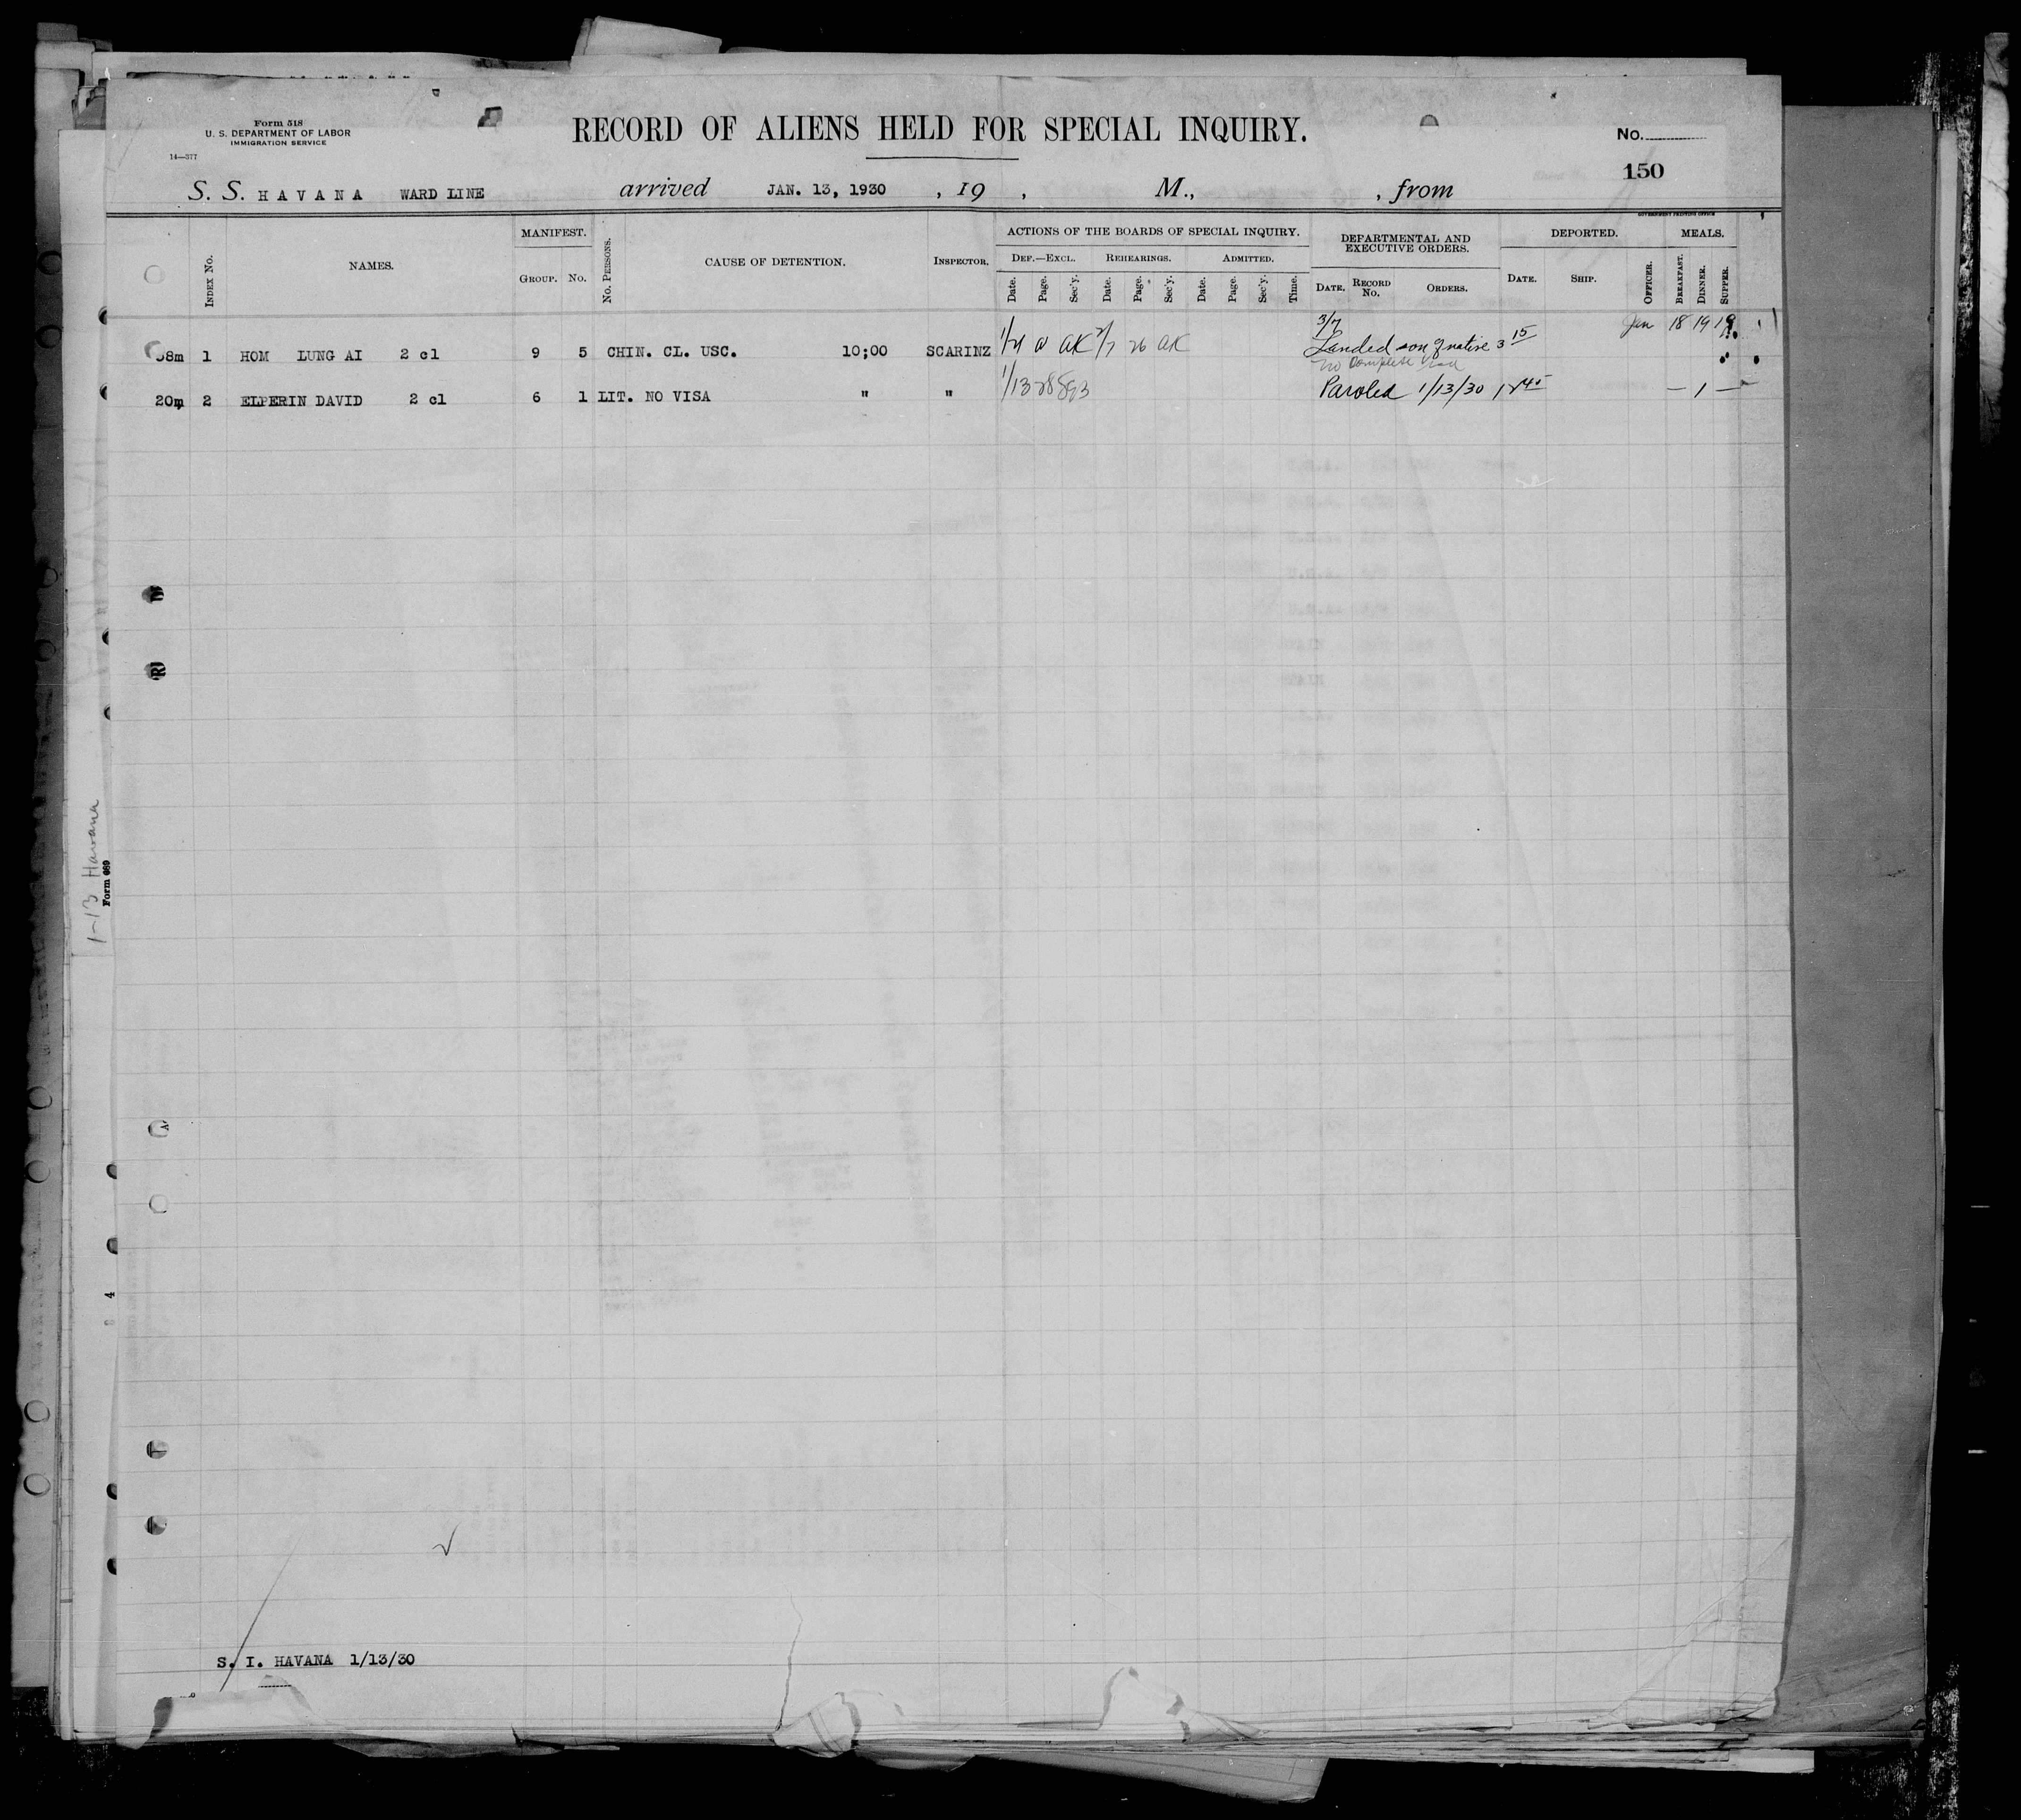 Form 518
U. S. DEPARTMENT OF LABOR
IMMIGRATION SERVICE
14—377
RECORD OF ALIENS HELD FOR SPECIAL INQUIRY.
No.
150
S. S. HAVANA WARD LINE arrived JAN. 13, 1930 , 19 , M., , from
GOVERNMENT PRINTING OFFICE
Index No.
NAMES.
MANIFEST.
Group. No.
No. Persons.
CAUSE OF DETENTION.
Inspector.
ACTIONS OF THE BOARDS OF SPECIAL INQUIRY.
Def.—Excl. Rehearings. Admitted.
Date. Page. Sec'y. Date. Page. Sec'y. Date. Page. Sec'y. Time.
DEPARTMENTAL AND
EXECUTIVE ORDERS.
Date. Record No. Orders.
DEPORTED.
Date. Ship. Officer.
MEALS.
Breakfast. Dinner. Supper.
3/7 Jan 18 19 19
8m 1 HOM LUNG AI 2 cl 9 5 CHIN. CL. USC. 10;00 SCARINZ AK 26 AK Landed son of native 3 15
no complete
20m 2 ELPERIN DAVID 2 cl 6 1 LIT. NO VISA " " 1/13 28 Paroled 1/13/30 — 1 —
1-13 Havana
Form 689
4
S. I. HAVANA 1/13/30